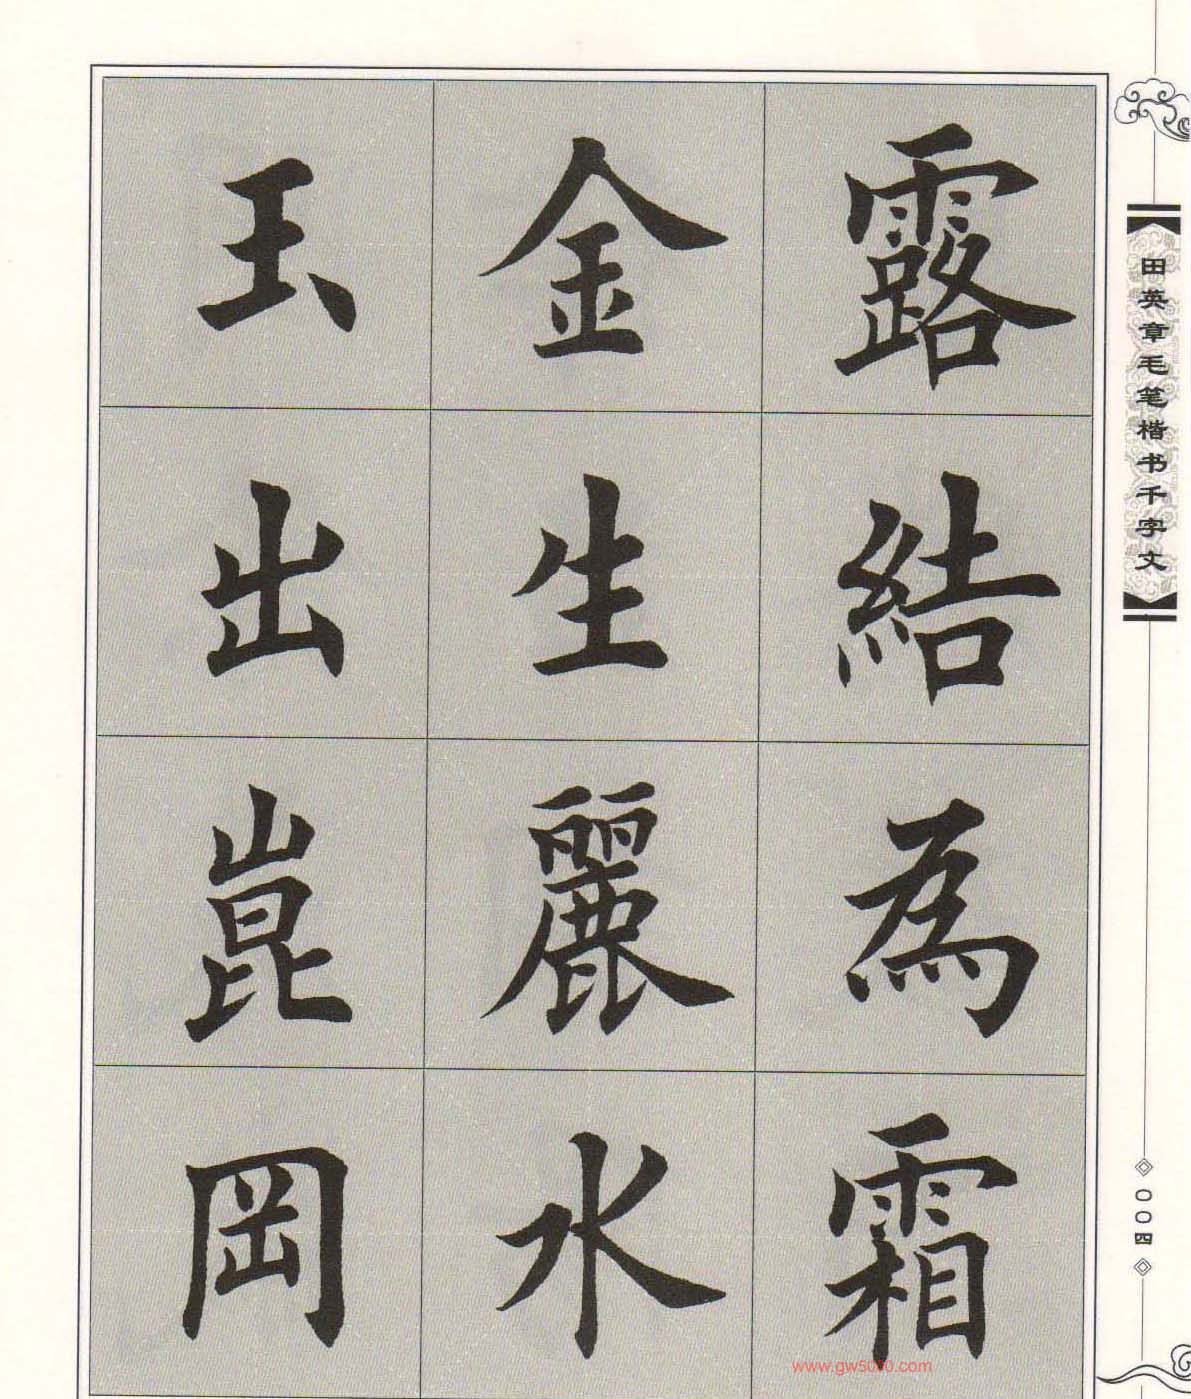 露結為霜
金生麗水
玉出崑岡
田英章毛笔楷书千字文
〇〇四
www.gw5000.com